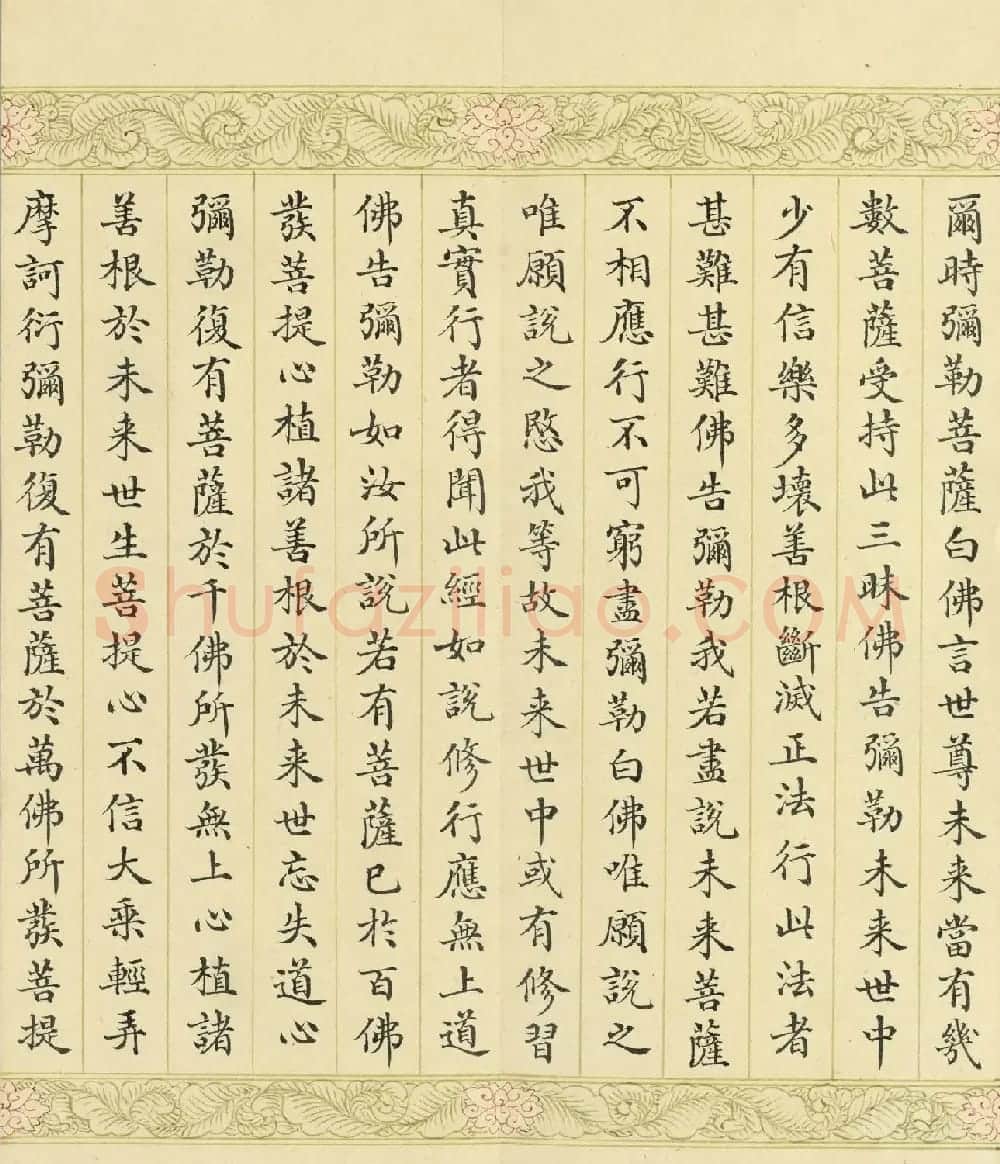 爾時彌勒菩薩白佛言世尊未来當有幾
數菩薩受持此三昧佛告彌勒未来世中
少有信樂多壞善根斷滅正法行此法者
甚難甚難佛告彌勒我若盡說未来菩薩
不相應行不可窮盡彌勒白佛唯願說之
唯願說之愍我等故未来世中或有修習
真實行者得聞此經如說修行應無上道
佛告彌勒如汝所說若有菩薩已於百佛
發菩提心植諸善根於未来世忘失道心
彌勒復有菩薩於千佛所發無上心植諸
善根於未来世生菩提心不信大乘輕弄
摩訶衍彌勒復有菩薩於萬佛所發菩提
Shufaziliao.COM